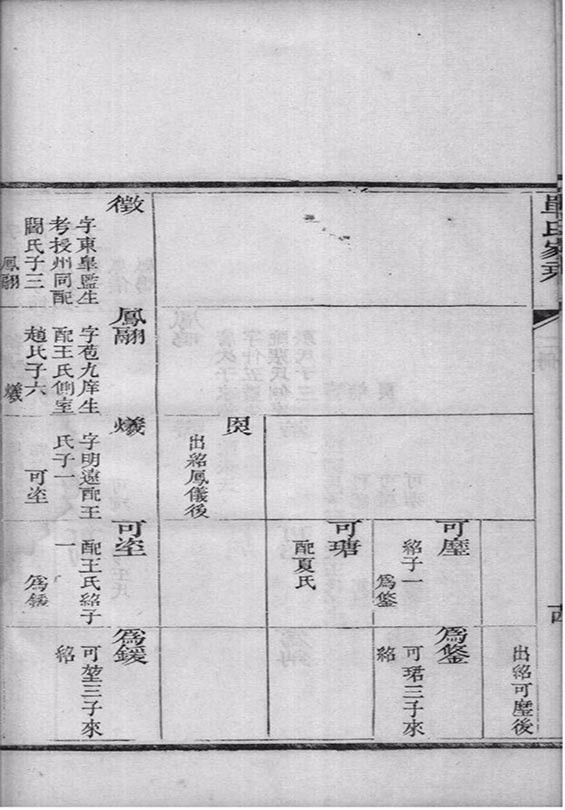 畢氏家乘
出紹可塵後
可塵
紹子一
為鋆
為鋆
可珺三子來
紹
可瑭
配夏氏
出紹鳳儀後
徵
字東皐監生
考授州同配
閻氏子三
鳳翮
鳳翮
字苞九庠生
配王氏側室
趙氏子六
爔
爔
字明遠配王
氏子一
可垐
可垐
配王氏紹子
一
為鍰
為鍰
可堃三子來
紹